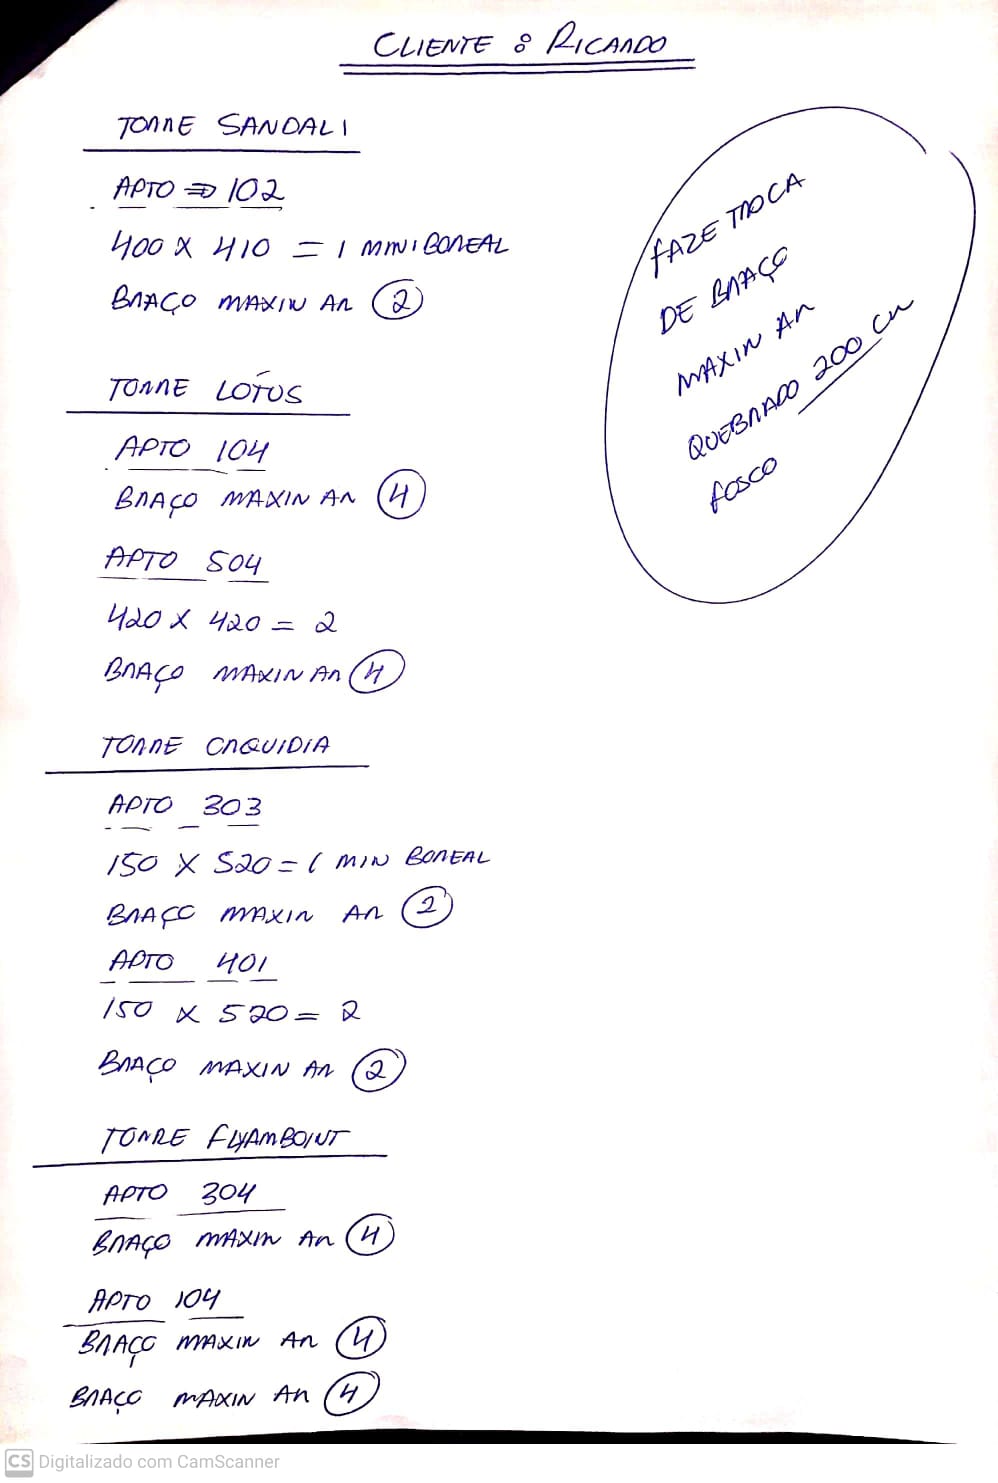 CLIENTE : RICARDO
TORRE SANDALI
APTO => 102
400 X 410 = 1 MINI BOREAL
BRAÇO MAXIM AR (2)
TORRE LÓTUS
APTO 104
BRAÇO MAXIM AR (4)
APTO 504
420 X 420 = 2
BRAÇO MAXIM AR (4)
TORRE ORQUIDIA
APTO 303
150 X 520 = 1 MIN BOREAL
BRAÇO MAXIM AR (2)
APTO 401
150 X 520 = 2
BRAÇO MAXIM AR (2)
TORRE FLYAMBOINT
APTO 304
BRAÇO MAXIM AR (4)
APTO 104
BRAÇO MAXIM AR (4)
BRAÇO MAXIM AR (4)
FAZE TROCA
DE BRAÇO
MAXIM AR
QUEBRADO 200 CM
FOSCO
CS Digitalizado com CamScanner